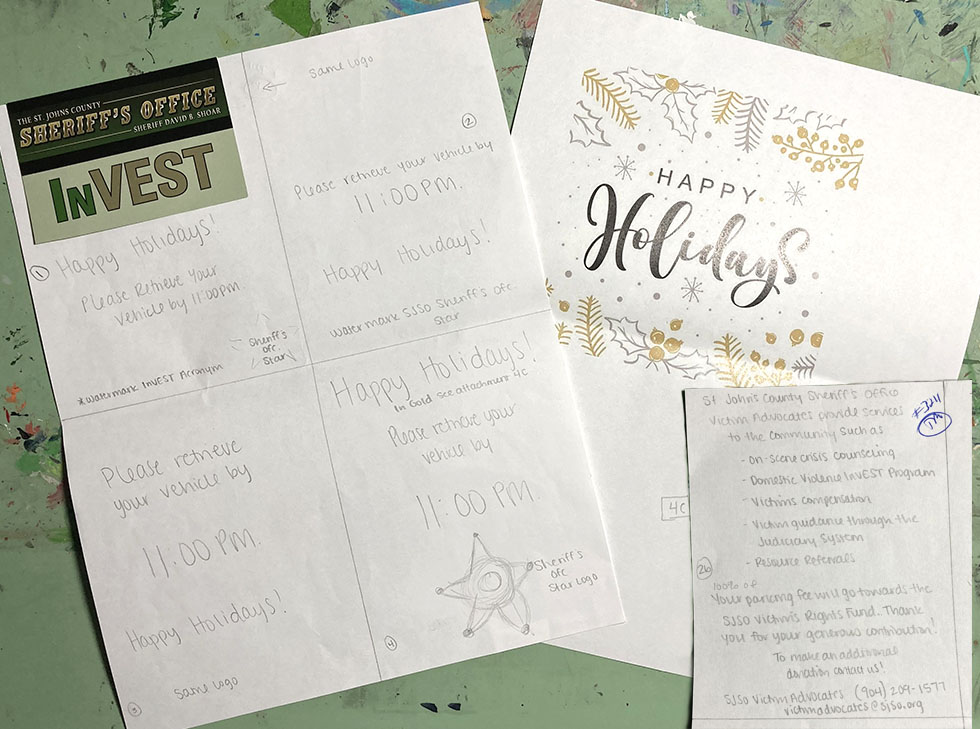 THE ST. JOHNS COUNTY
SHERIFF'S OFFICE
SHERIFF DAVID B. SHOAR
InVEST
1
Happy Holidays!
Please Retrieve Your
Vehicle by 11:00PM.
Sheriff's
Ofc.
Star
*Watermark InVEST Acronym
same logo
2
Please retrieve your vehicle by
11:00 PM.
Happy Holidays!
Watermark SJSO Sheriff's Ofc.
Star
Please retrieve
your vehicle by
11:00 PM.
Happy Holidays!
Same Logo
3
Happy Holidays!
In Gold See attachment 4C
Please retrieve your
vehicle by
11:00 PM.
Sheriff's
Ofc
Star Logo
4
HAPPY
Holidays
4C
St John's County Sheriff's Office
Victim Advocates provide services
to the community such as
- On-scene crisis counseling
- Domestic Violence InVEST Program
- Victims compensation
- Victim guidance through the
Judiciary System
- Resource Referrals
2b
100% of
Your parking fee will go towards the
SJSO Victim's Rights Fund.. Thank
you for your generous contribution!
To make an additional
donation contact us!
SJSO Victim Advocates (904) 209-1577
victimadvocates@sjso.org